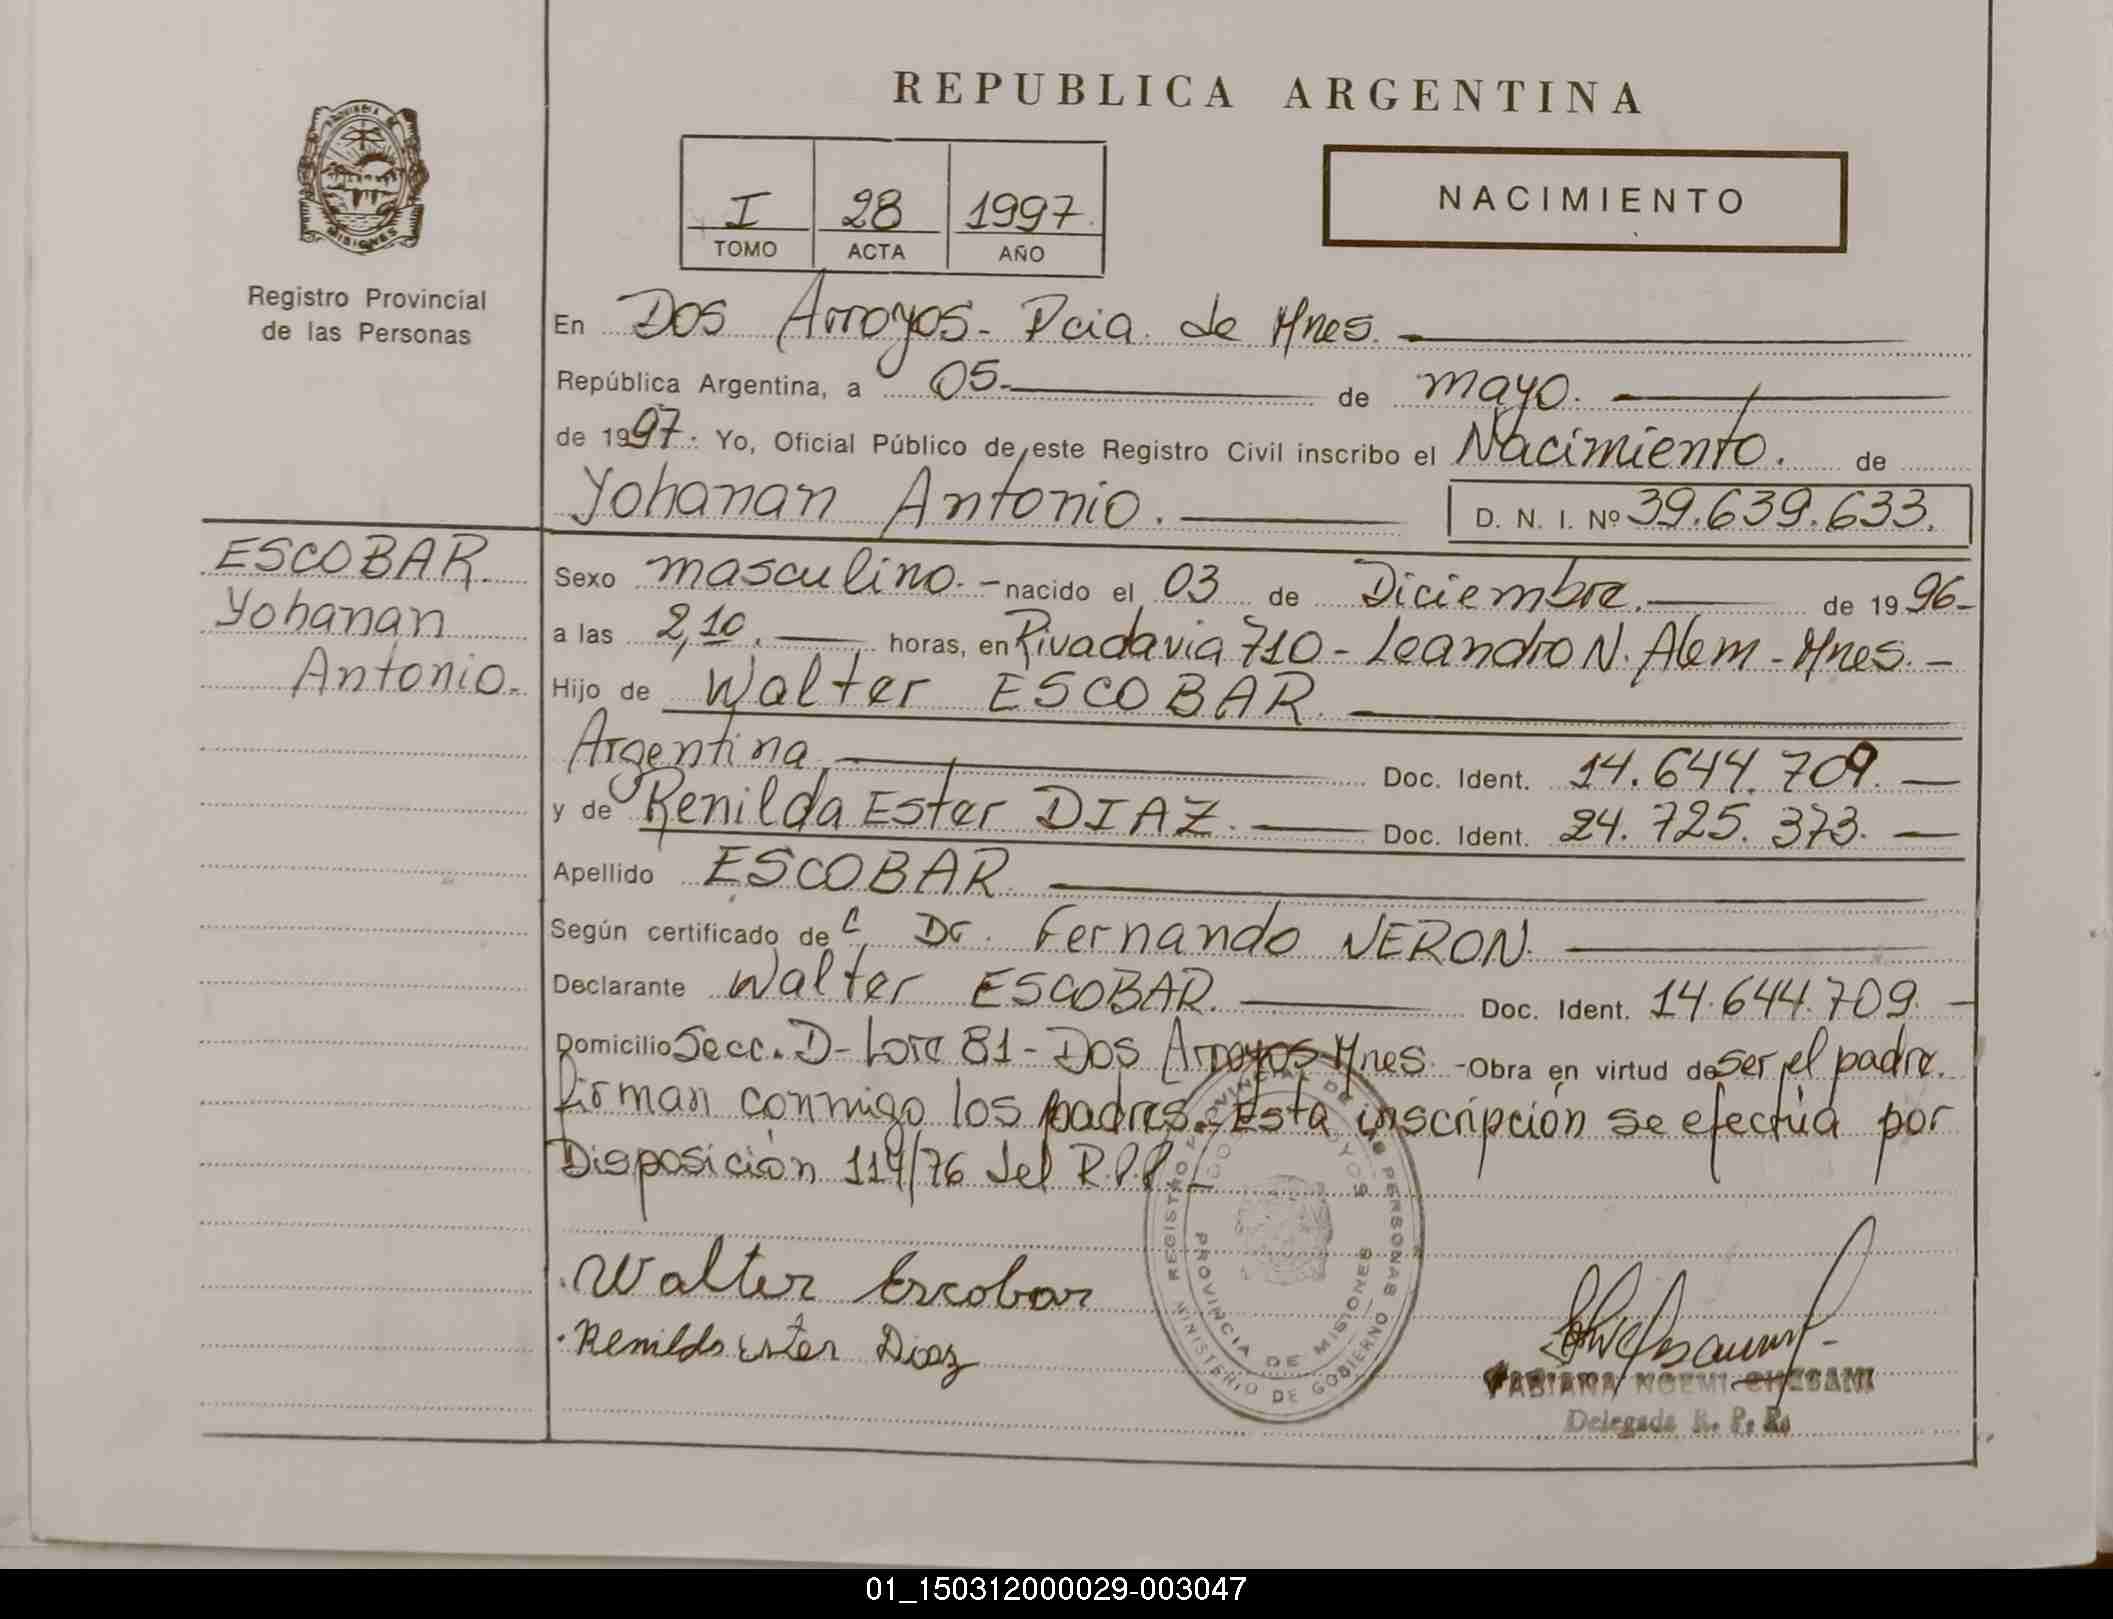 REPUBLICA ARGENTINA
PROVINCIA DE
MISIONES
Registro Provincial
de las Personas
I 28 1997.
TOMO ACTA AÑO
NACIMIENTO
En Dos Arroyos - Pcia. de Mnes.
República Argentina, a 05.- de mayo.
de 1997. Yo, Oficial Público de este Registro Civil inscribo el Nacimiento. de
Yohanan Antonio. D. N. I. Nº 39.639.633.
ESCOBAR.
Yohanan
Antonio.-
Sexo masculino. - nacido el 03 de Diciembre. de 1996-
a las 2,10. horas, en Rivadavia 710 - Leandro N. Alem - Mnes. -
Hijo de Walter ESCOBAR.
Argentina Doc. Ident. 14.644.709. -
y de Renilda Ester DIAZ. Doc. Ident. 24.725.373. -
Apellido ESCOBAR
Según certificado de Dr. Fernando NERON.
Declarante Walter ESCOBAR. Doc. Ident. 14.644.709. -
Domicilio Secc. D - Lote 81 - Dos Arroyos Mnes. - Obra en virtud de ser el padre.
firman conmigo los padres. Esta inscripción se efectúa por
Disposición 119/76 del R.P.P. -
REGISTRO PROVINCIAL DE LAS PERSONAS
DOS ARROYOS
PROVINCIA DE MISIONES
MINISTERIO DE GOBIERNO
Walter Escobar
Renilda Ester Diaz
FABIANA NOEMI CHESANI
Delegada R. P. P.
01_150312000029-003047